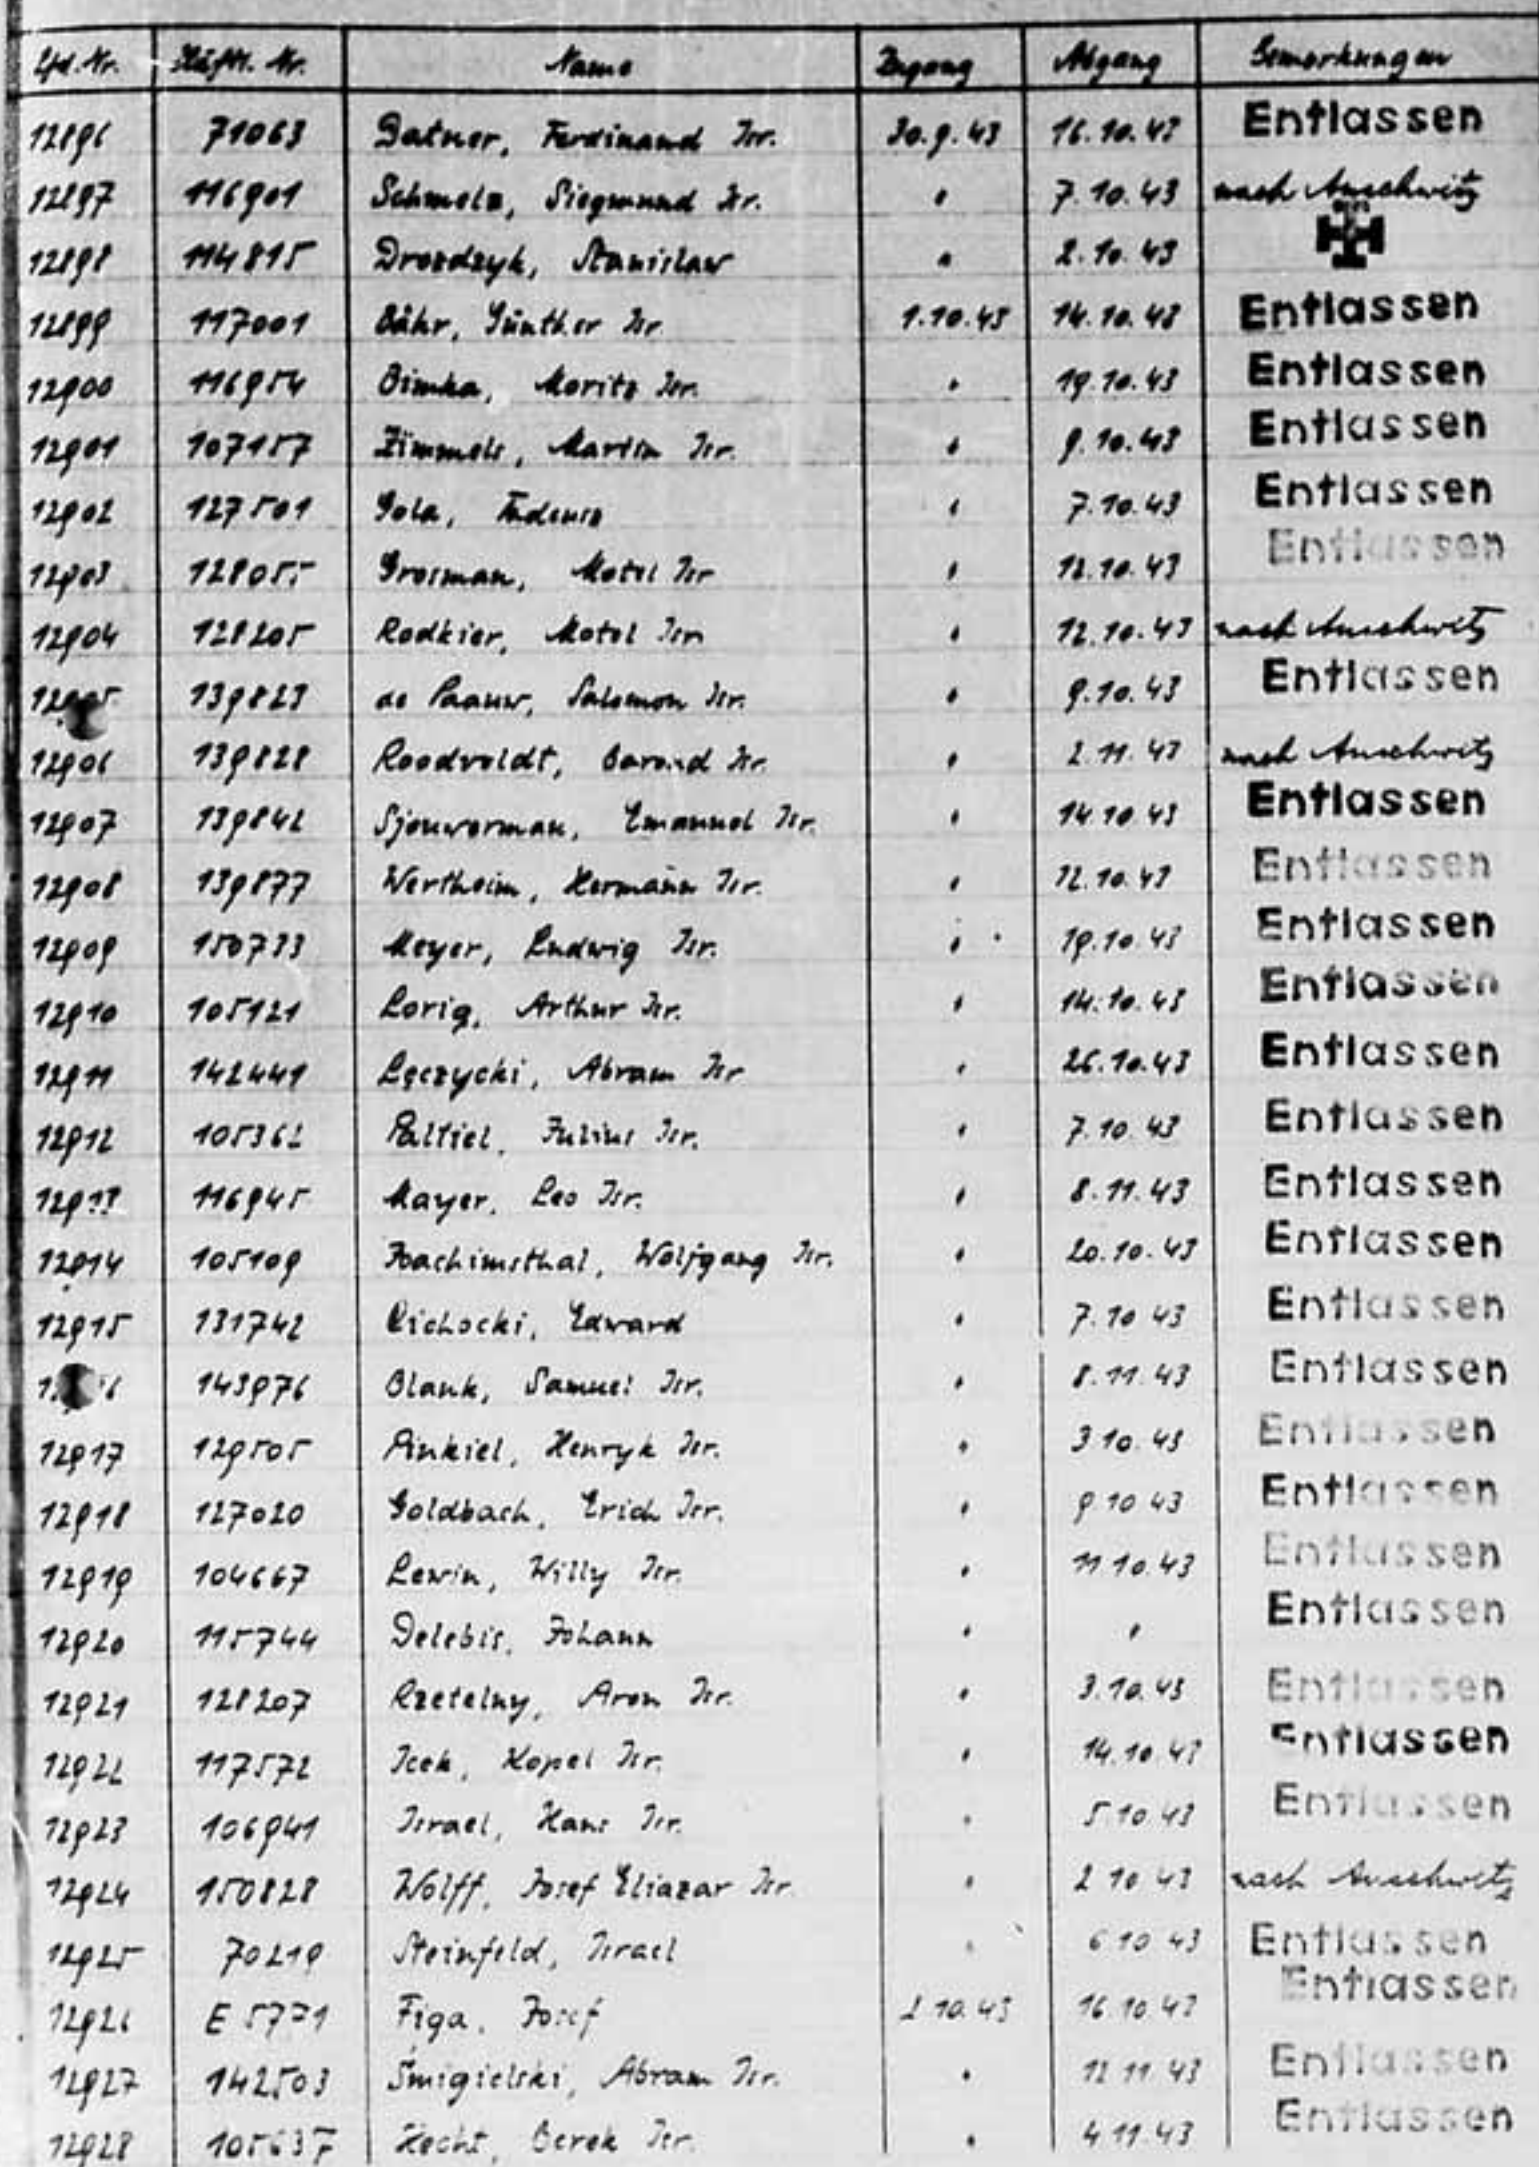 Lfd. Nr. Häftl. Nr. Name Zugang Abgang Bemerkungen
12896 71063 Datner, Ferdinand Isr. 30.9.43 16.10.43 Entlassen
12897 116901 Schmelz, Siegmund Isr. " 7.10.43 nach Auschwitz
12898 114815 Drozdzyk, Stanislaw " 2.10.43
12899 117001 Bähr, Günther Isr. 1.10.43 14.10.43 Entlassen
12900 116954 Bimka, Moritz Isr. " 19.10.43 Entlassen
12901 107157 Zimmels, Martin Isr. " 9.10.43 Entlassen
12902 127501 Gola, Tadeusz " 7.10.43 Entlassen
12903 128055 Grosman, Motel Isr " 12.10.43 Entlassen
12904 128205 Rodkier, Motel Isr. " 12.10.43 nach Auschwitz
12905 139823 de Paauw, Salomon Isr. " 9.10.43 Entlassen
12906 139828 Roodveldt, Barend Isr. " 2.11.43 nach Auschwitz
12907 139842 Sjouwerman, Emanuel Isr. " 14.10.43 Entlassen
12908 139877 Wertheim, Hermann Isr. " 12.10.43 Entlassen
12909 150733 Meyer, Ludwig Isr. " 19.10.43 Entlassen
12910 105121 Lorig, Arthur Isr. " 14.10.43 Entlassen
12911 142441 Łęczycki, Abram Isr " 26.10.43 Entlassen
12912 105362 Paltiel, Julius Isr. " 7.10.43 Entlassen
12913 116945 Mayer, Leo Isr. " 8.11.43 Entlassen
12914 105109 Joachimsthal, Wolfgang Isr. " 20.10.43 Entlassen
12915 131742 Cichocki, Edward " 7.10.43 Entlassen
143976 Blank, Samuel Isr. " 8.11.43 Entlassen
12917 129505 Pinkiel, Henryk Isr. " 3.10.43 Entlassen
12918 127020 Goldbach, Erich Isr. " 9.10.43 Entlassen
12919 104667 Lewin, Willy Isr. " 11.10.43 Entlassen
12920 115744 Delebis, Johann " " Entlassen
12921 128207 Rzetelny, Aron Isr. " 3.10.43 Entlassen
12922 117572 Icek, Kopel Isr. " 14.10.43 Entlassen
12923 106941 Israel, Hans Isr. " 5.10.43 Entlassen
12924 150828 Wolff, Josef Eliazar Isr " 2.10.43 nach Auschwitz
12925 70219 Steinfeld, Israel " 6.10.43 Entlassen
12926 E 5771 Figa, Josef 2.10.43 16.10.43 Entlassen
12927 142503 Śmigielski, Abram Isr. " 12.11.43 Entlassen
12928 105637 Hecht, Berek Isr. " 4.11.43 Entlassen